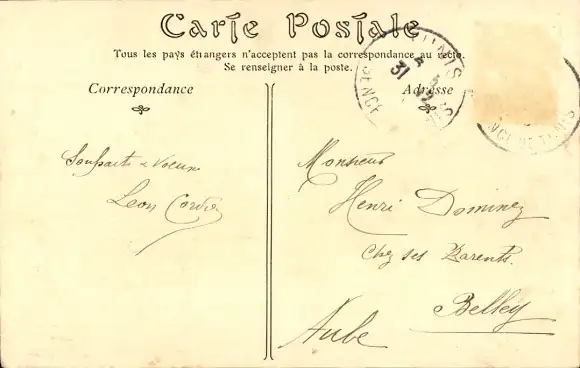 Carte Postale
Tous les pays étrangers n'acceptent pas la correspondance au recto.
Se renseigner à la poste.
Correspondance
Adresse
Souhaits & Voeux
Leon Cordier
Monsieur
Henri Dominez
Chez ses Parents.
Belley
Aube
TUNIS
31